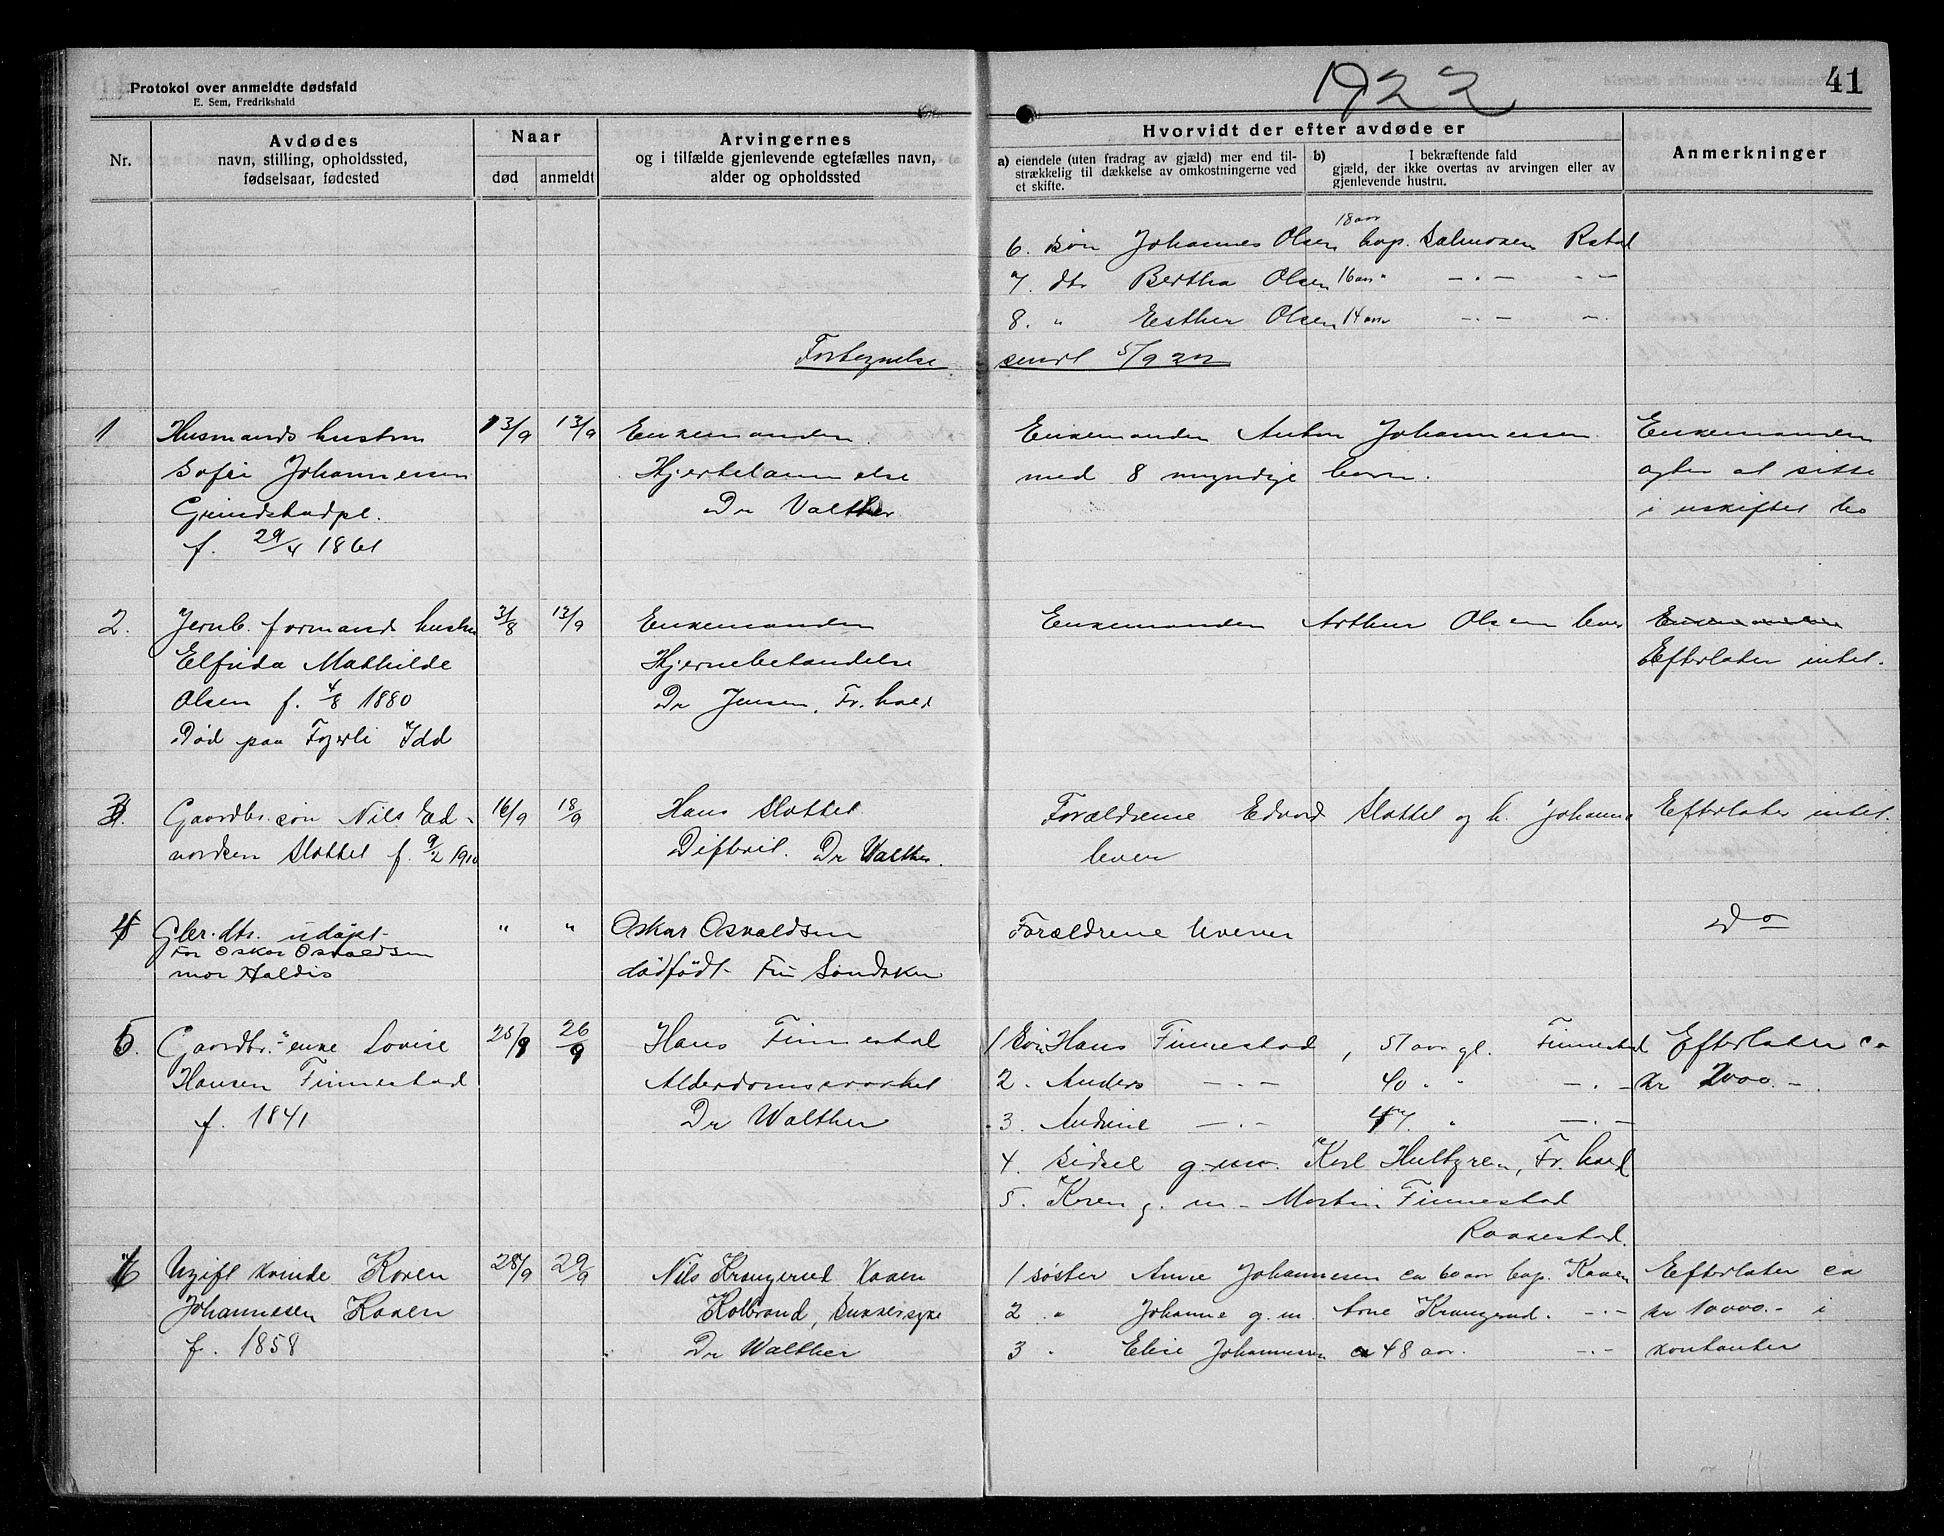 Protokol over anmeldte dødsfald
E. Sem, Fredrikshald
1922
41
Nr.
Avdødes
navn, stilling, opholdssted,
fødselsaar, fødested
Naar
død
anmeldt
Arvingernes
og i tilfælde gjenlevende egtefælles navn,
alder og opholdssted
Hvorvidt der efter avdøde er
a) eiendele (uten fradrag av gjæld) mer end til-
strækkelig til dækkelse av omkostningerne ved
et skifte.
b) I bekræftende fald
gjæld, der ikke overtas av arvingen eller av
gjenlevende hustru.
Anmerkninger
6. søn Johannes Olsen 18 aar bop. Rstad
7. dtr Bertha Olsen 16 aar " — . — . —
8. " Esther Olsen 14 aar — . — —.
Fortegnelse sendt 5/9 22
1 Husmands hustru 13/9 13/9 Enkemanden Enkemanden Anton Johannessen Enkemanden
Sofie Johannessen Hjertelammelse med 8 myndige børn. agter at sitte
Grindstadpl. Dr Walther i uskiftet bo
f. 29/4 1861
2. Jernb. formands hustru 31/8 13/9 Enkemanden Enkemanden Arthur Olsen lever Enkemanden
Elfrida Mathilde Hjernebetændelse Efterlater intet.
Olsen f. 4/8 1880 Dr Jensen, Fr. hald
Død paa Idd
3. Gaardbr. søn Nils Ed- 16/9 18/9 Hans Slottet Forældrene Edvard Slottet og h. Johanna Efterlater intet.
vardsen Slottet f. 9/2 1910 Difterit. Dr Walther. lever
4 Gbr. dtr. udøpt " " Oskar Osvaldsen Forældrene lever Do
Far Oskar Osvaldsen
mor Haldis dødfødt
5. Gaardbr. enke Lovise 25/9 26/9 Hans Finnestad 1 Søn Hans Finnestad, 51 aar gl. Finnestad Efterlater ca
Hansen Finnestad Alderdomssvækket 2. Anders — . — 40 " " — . — kr 2000.-
f. 1841 Dr Walther 3. Andrine — . — 47. " — . —
4. Sidsel g. m. Karl Hultgren, Fr. hald
5. Karen g. m. Martin Finnestad
6 Ugift kvinde Karen 28/9 29/9 Nils Krangerud Kaaen 1 søster Anne Johannesen ca 60 aar bop. Kaaen Efterlater ca
Johannesen Kaaen Kolbrand, sukkersyke 2 " Johanne g. m. Arne Krangerud. — . — kr 10000.- i
f. 1858 Dr Walther 3 " Elise Johannessen ca 48 aar. — . — kontanter